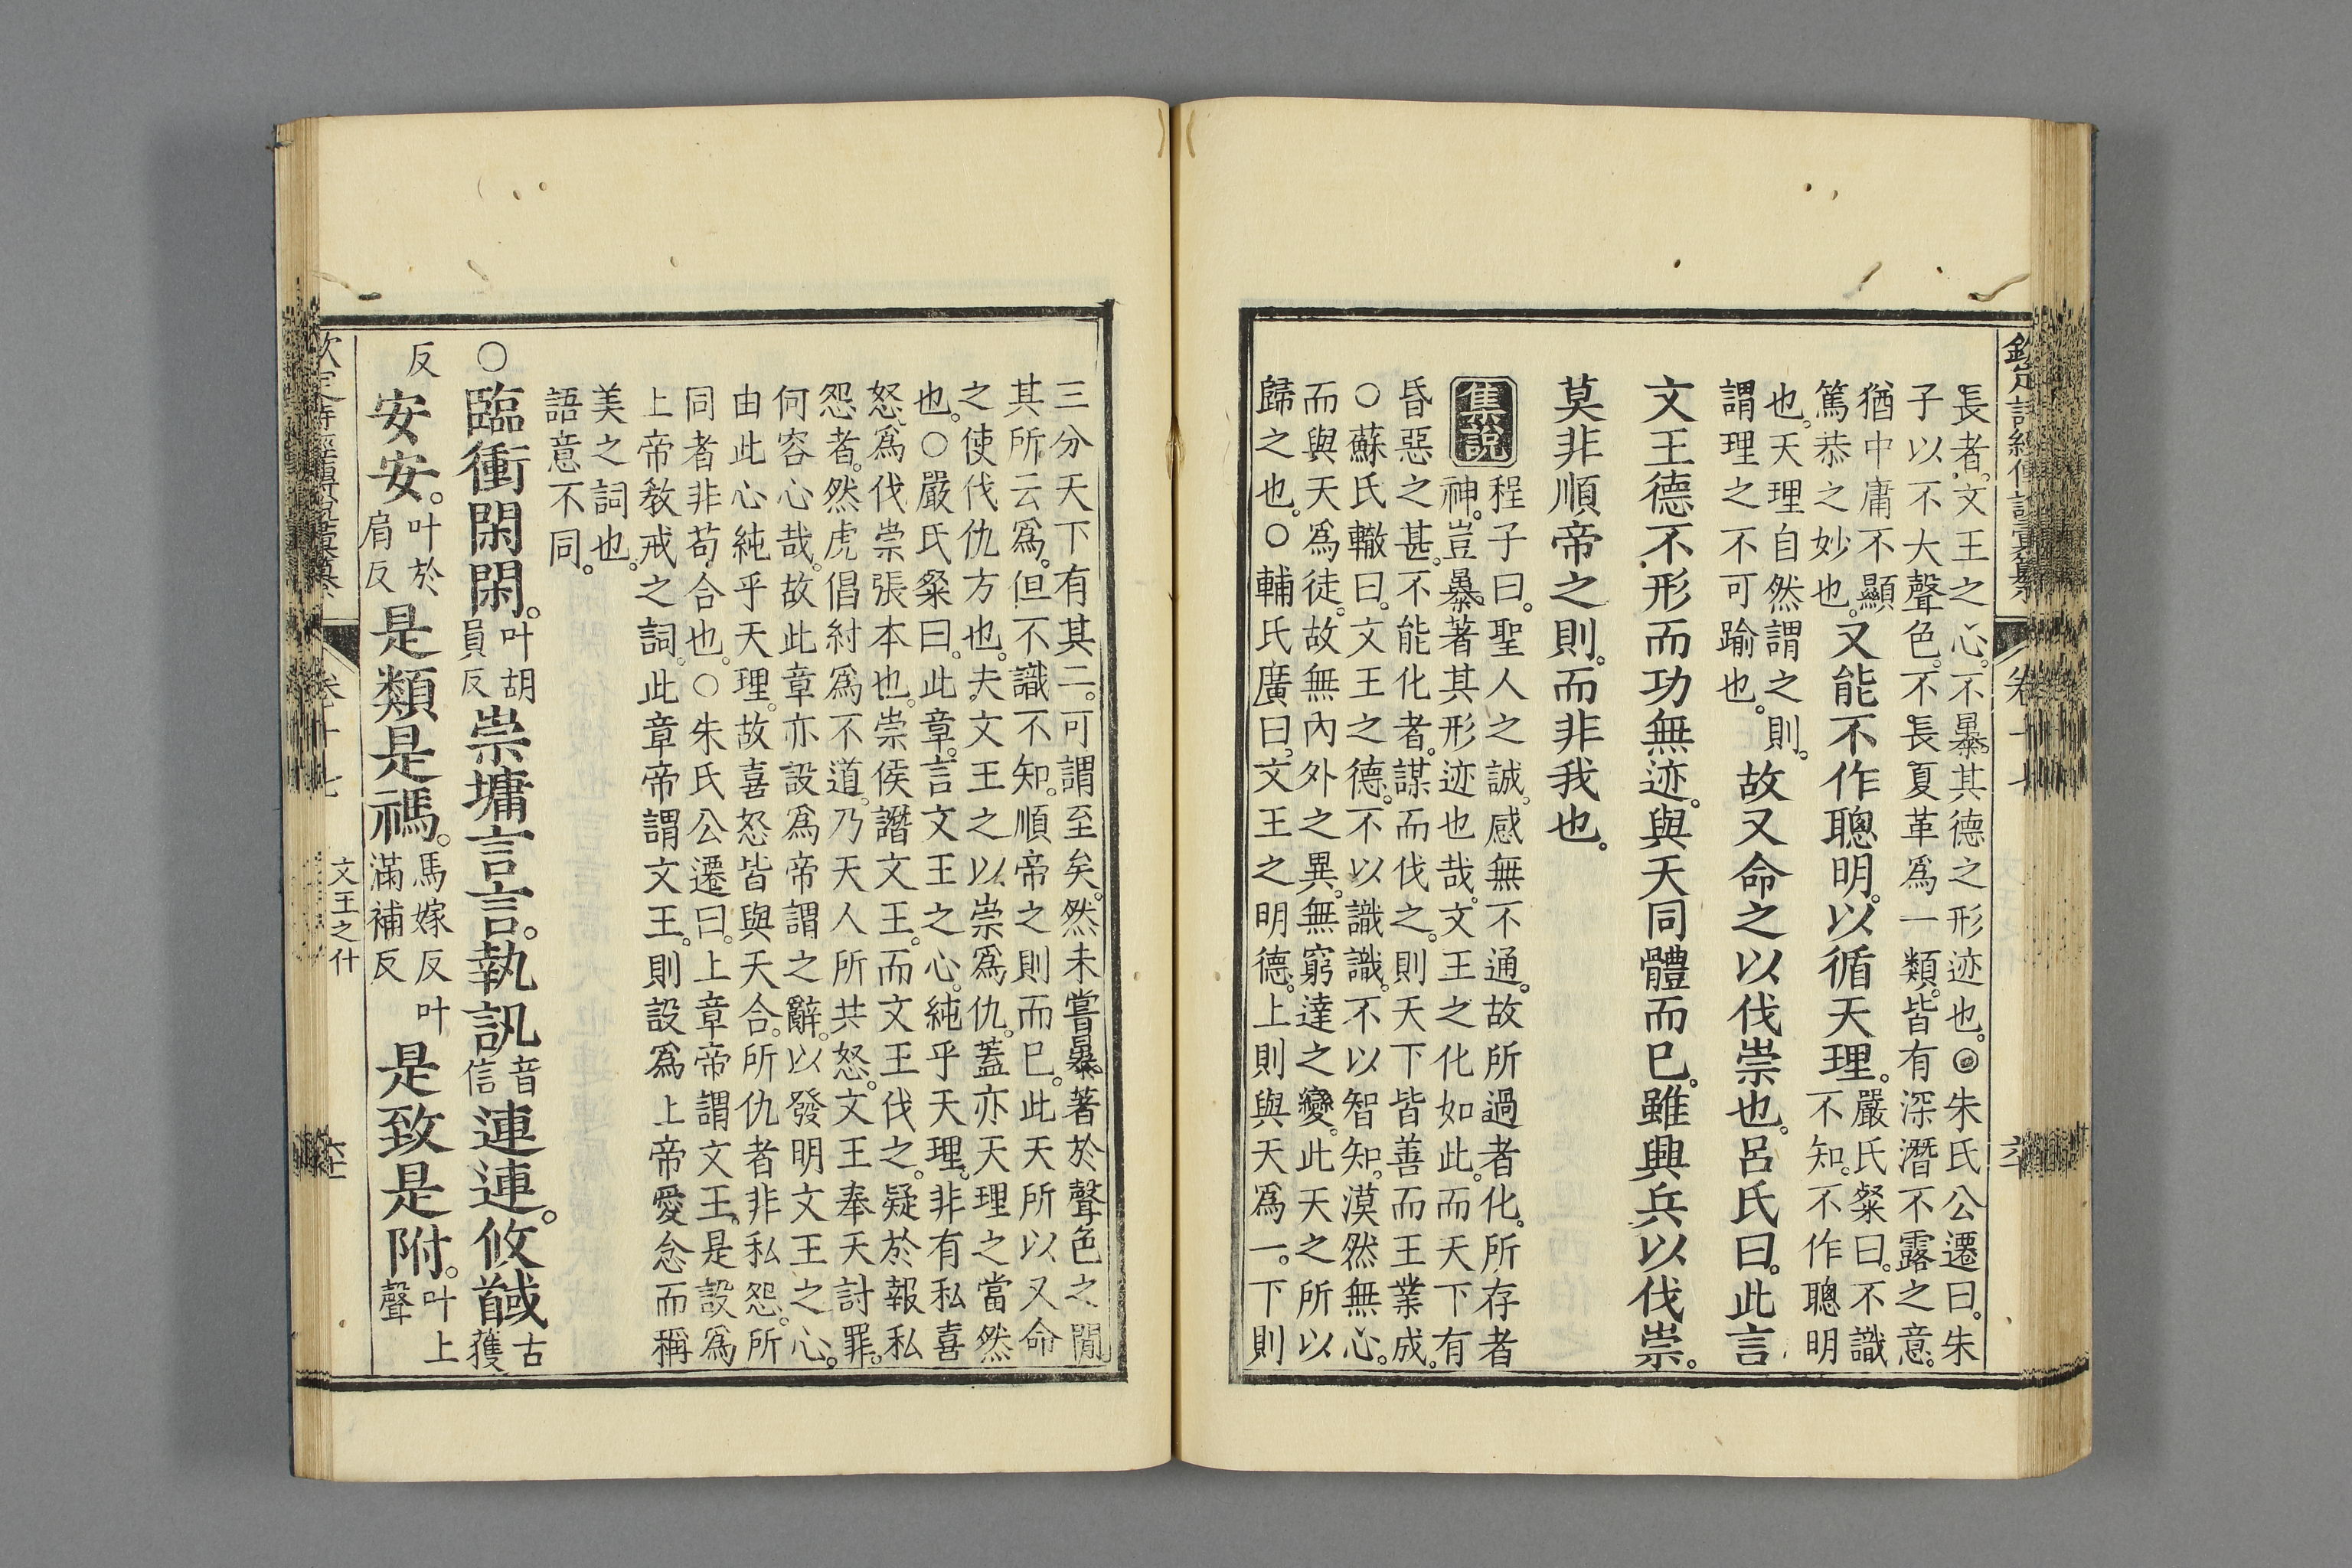 欽定詩經傳說彙纂 卷十七 六十
長者。文王之心。不暴其德之形迹也。◎朱氏公遷曰。朱
子以不大聲色。不長夏革爲一類。皆有深潛不露之意。
猶中庸不顯篤恭之妙也。又能不作聰明。以循天理。嚴氏粲曰。不識不知。不作聰明
也。天理自然謂之則。謂理之不可踰也。故又命之以伐崇也。呂氏曰。此言
文王德不形而功無迹。與天同體而已。雖興兵以伐崇。
莫非順帝之則。而非我也。
集說 程子曰。聖人之誠。感無不通。故所過者化。所存者
神。豈暴著其形迹也哉。文王之化如此。而天下有
昏惡之甚。不能化者。謀而伐之。則天下皆善而王業成。
○蘇氏轍曰。文王之德。不以識識。不以智知。漠然無心。
而與天爲徒。故無內外之異。無窮達之變。此天之所以
歸之也。○輔氏廣曰。文王之明德。上則與天爲一。下則
三分天下有其二。可謂至矣。然未嘗暴著於聲色之閒
其所云爲。但不識不知。順帝之則而已。此天所以又命
之使伐仇方也。夫文王之以崇爲仇。蓋亦天理之當然
也。○嚴氏粲曰。此章。言文王之心。純乎天理。非有私喜
怒。爲伐崇張本也。崇侯譖文王。而文王伐之。疑於報私
怨者。然虎倡紂爲不道。乃天人所共怒。文王奉天討罪。
何容心哉。故此章亦設爲帝謂之辭。以發明文王之心。
由此心純乎天理。故喜怒皆與天合。所仇者非私怨。所
同者非苟合也。○朱氏公遷曰。上章帝謂文王。是設爲
上帝敎戒之詞。此章帝謂文王。則設爲上帝愛念而稱
美之詞也。
語意不同。
○臨衝閑閑。叶胡員反崇墉言言。執訊音信連連。攸馘古獲
反安安。叶於肩反是類是禡。馬嫁反叶滿補反是致是附。叶上聲
欽定詩經傳說彙纂 卷十七 文王之什 六十一